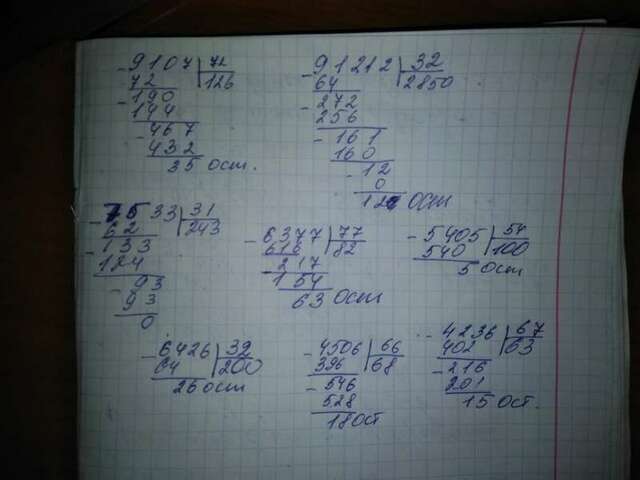 - 9107 | 72
72 | 126
- 190
144
- 467
432
35 ост.
- 91212 | 32
64 | 2850
- 272
256
- 161
160
- 12
0
12 ост
- 7533 | 31
62 | 243
- 133
124
- 93
93
0
- 6377 | 77
616 | 82
- 217
154
63 ост
- 5405 | 54
540 | 100
5 ост
- 6426 | 32
64 | 200
26 ост
- 4506 | 66
396 | 68
- 546
528
18 ост
- 4236 | 67
402 | 63
- 216
201
15 ост.